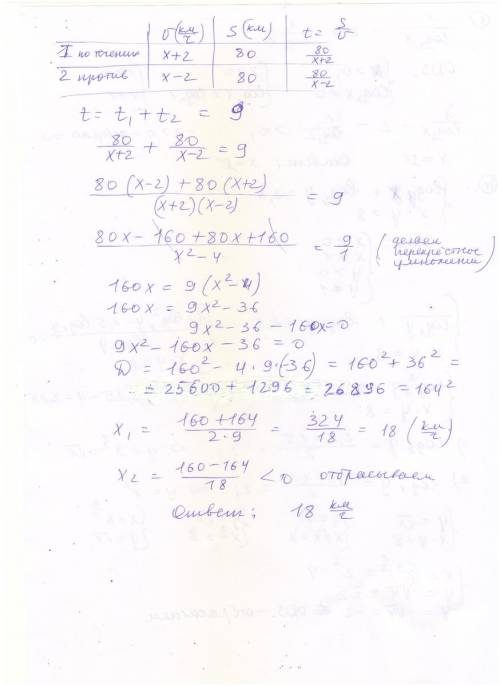 υ(км/ч) S(км) t = S/υ
1 по течению x+2 80 80/(x+2)
2 против x−2 80 80/(x−2)
t = t₁ + t₂ = 9
80/(x+2) + 80/(x−2) = 9
(80(x−2) + 80(x+2))/((x+2)(x−2)) = 9
(80x − 160 + 80x + 160)/(x² − 4) = 9/1 (делаем перекрёстное умножение)
160x = 9(x² − 4)
160x = 9x² − 36
9x² − 36 − 160x = 0
9x² − 160x − 36 = 0
D = 160² − 4·9·(−36) = 160² + 36² =
= 25600 + 1296 = 26896 = 164²
x₁ = (160 + 164)/(2·9) = 324/18 = 18 (км/ч)
x₂ = (160 − 164)/18 < 0 отбрасываем
Ответ: 18 км/ч